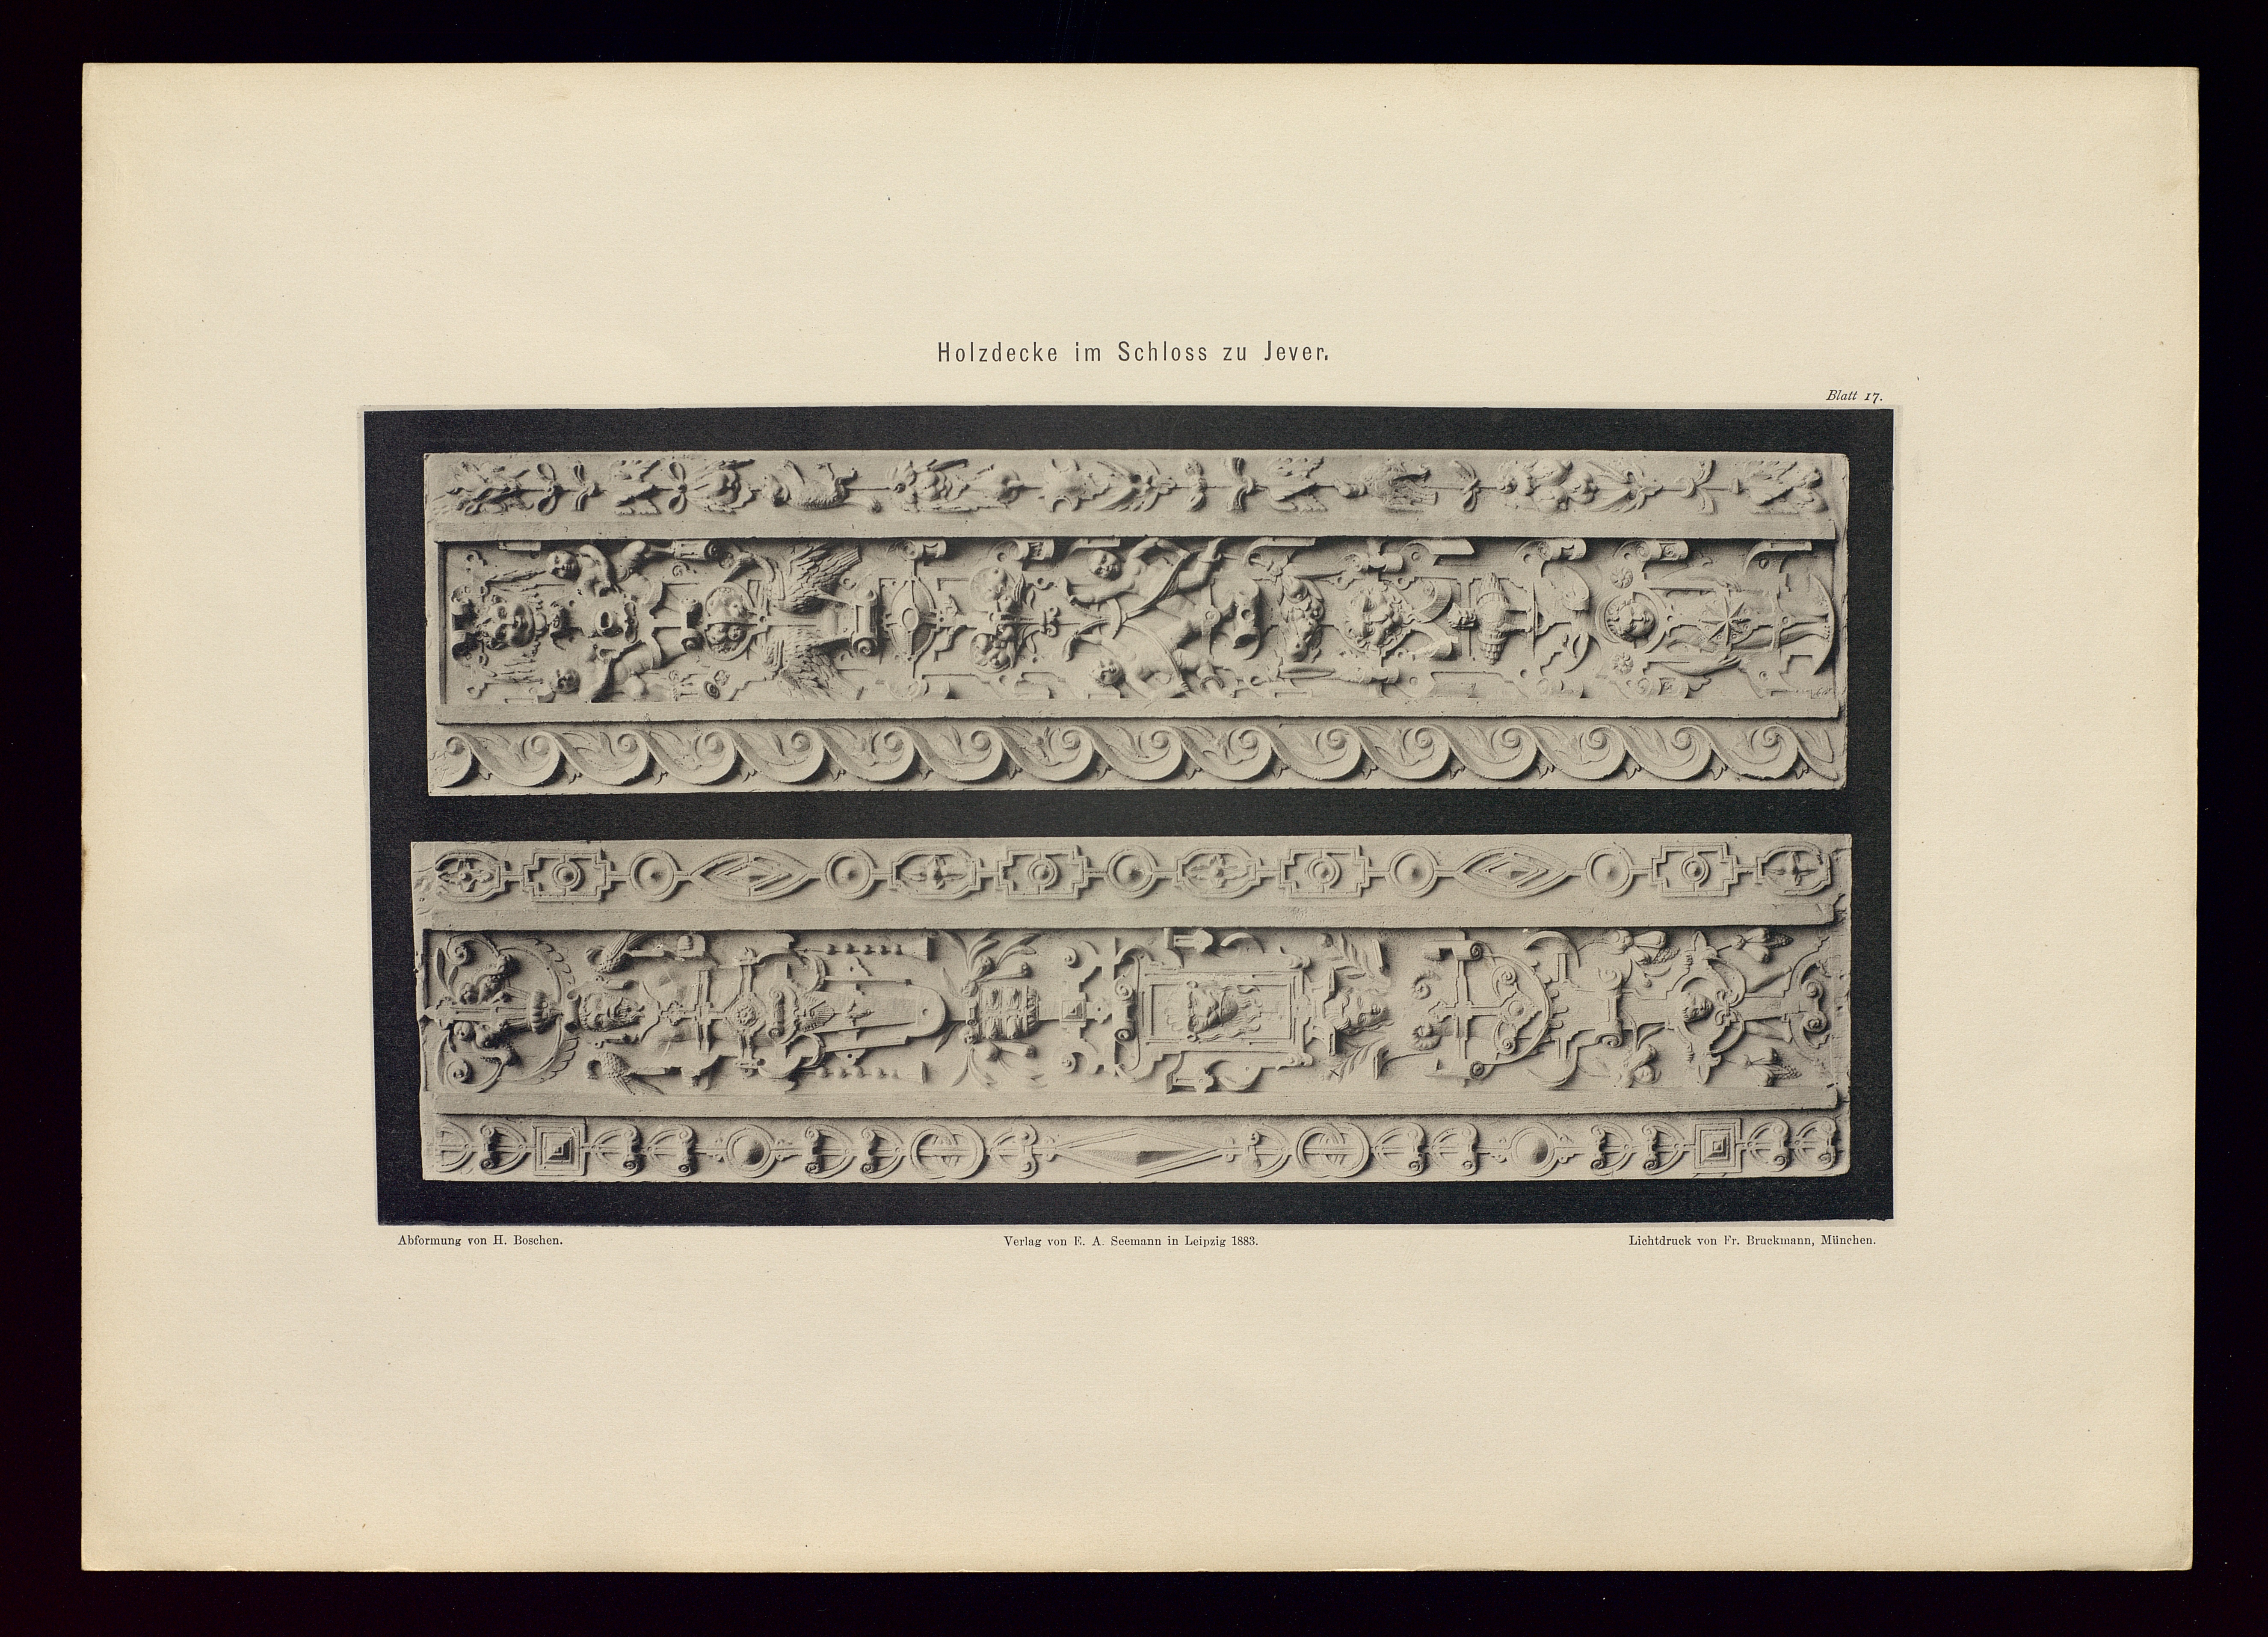 Holzdecke im Schloss zu Jever.
Blatt 17.
Abformung von H. Boschen.
Verlag von E. A. Seemann in Leipzig 1883.
Lichtdruck von Fr. Bruckmann, München.